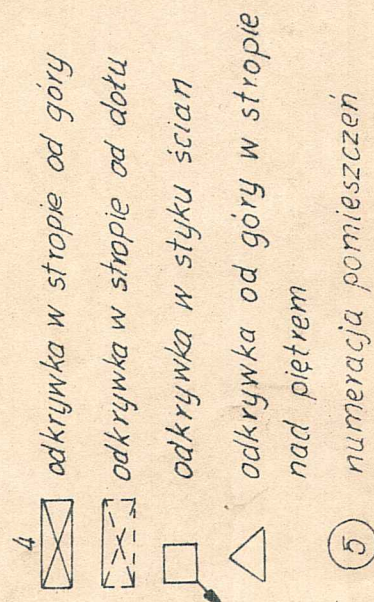 4
odkrywka w stropie od góry
odkrywka w stropie od dołu
odkrywka w styku ścian
odkrywka od góry w stropie
nad piętrem
5 numeracja pomieszczeń